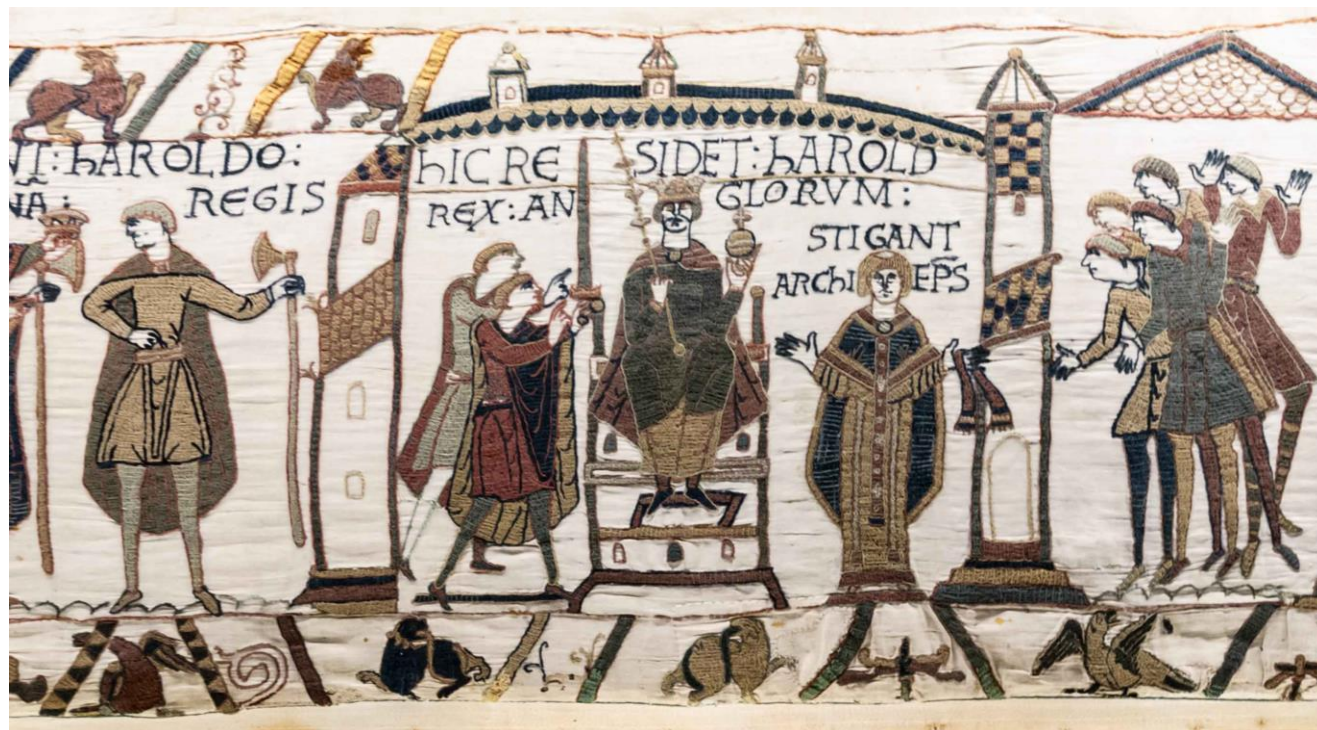 NT: hAROLDO:
NA: REGIS
hIC RESIDET: hAROLD
REX: ANGLORVM:
STIGANT
ARChIEPS